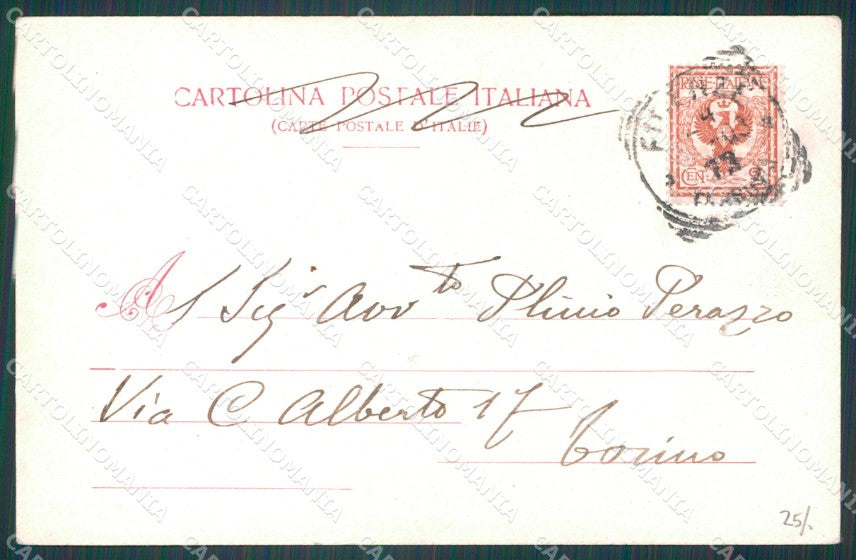 CARTOLINA POSTALE ITALIANA
(CARTE POSTALE D'ITALIE)
POSTE ITALIANE
CEN. 2
Al Sigr Avvto Plinio Perazzo
Via C Alberto 17
Torino
25/-
CARTOLINOMANIA